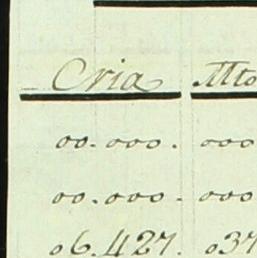 Cria Mto
00.000. 000
00.000. 000
06.427. 037